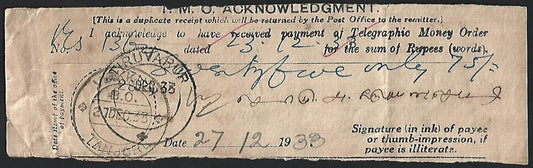 T. M. O. ACKNOWLEDGMENT.
[This is a duplicate receipt which will be returned by the Post Office to the remitter.]
I acknowledge to have received payment of Telegraphic Money Order
No. dated 23.12.33 for the sum of Rupees (words).
Seventyfive only 75/-
Date stamp of the office of payment.
TIRUVARUR
27 DEC. 33
Date 27-12-1933
Signature (in ink) of payee
or thumb-impression, if
payee is illiterate.